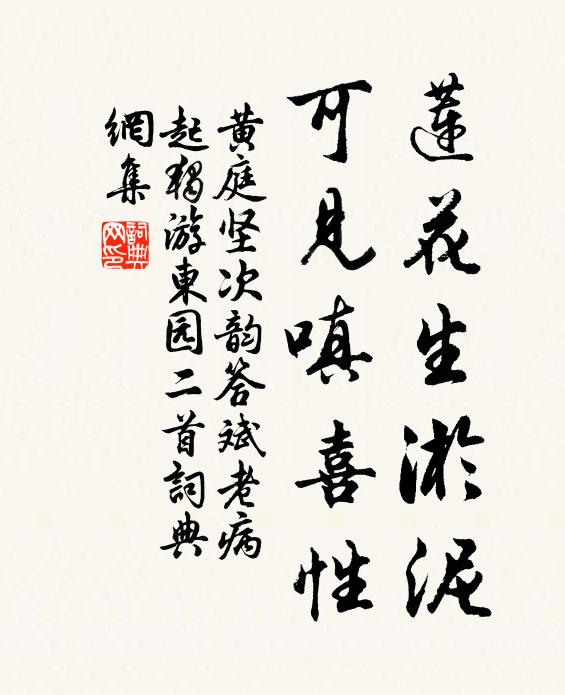 蓮花生淤泥
可見嗔喜性
黄庭坚次韵答斌老病
起獨游東园二首詞典
網集
詞典
网印